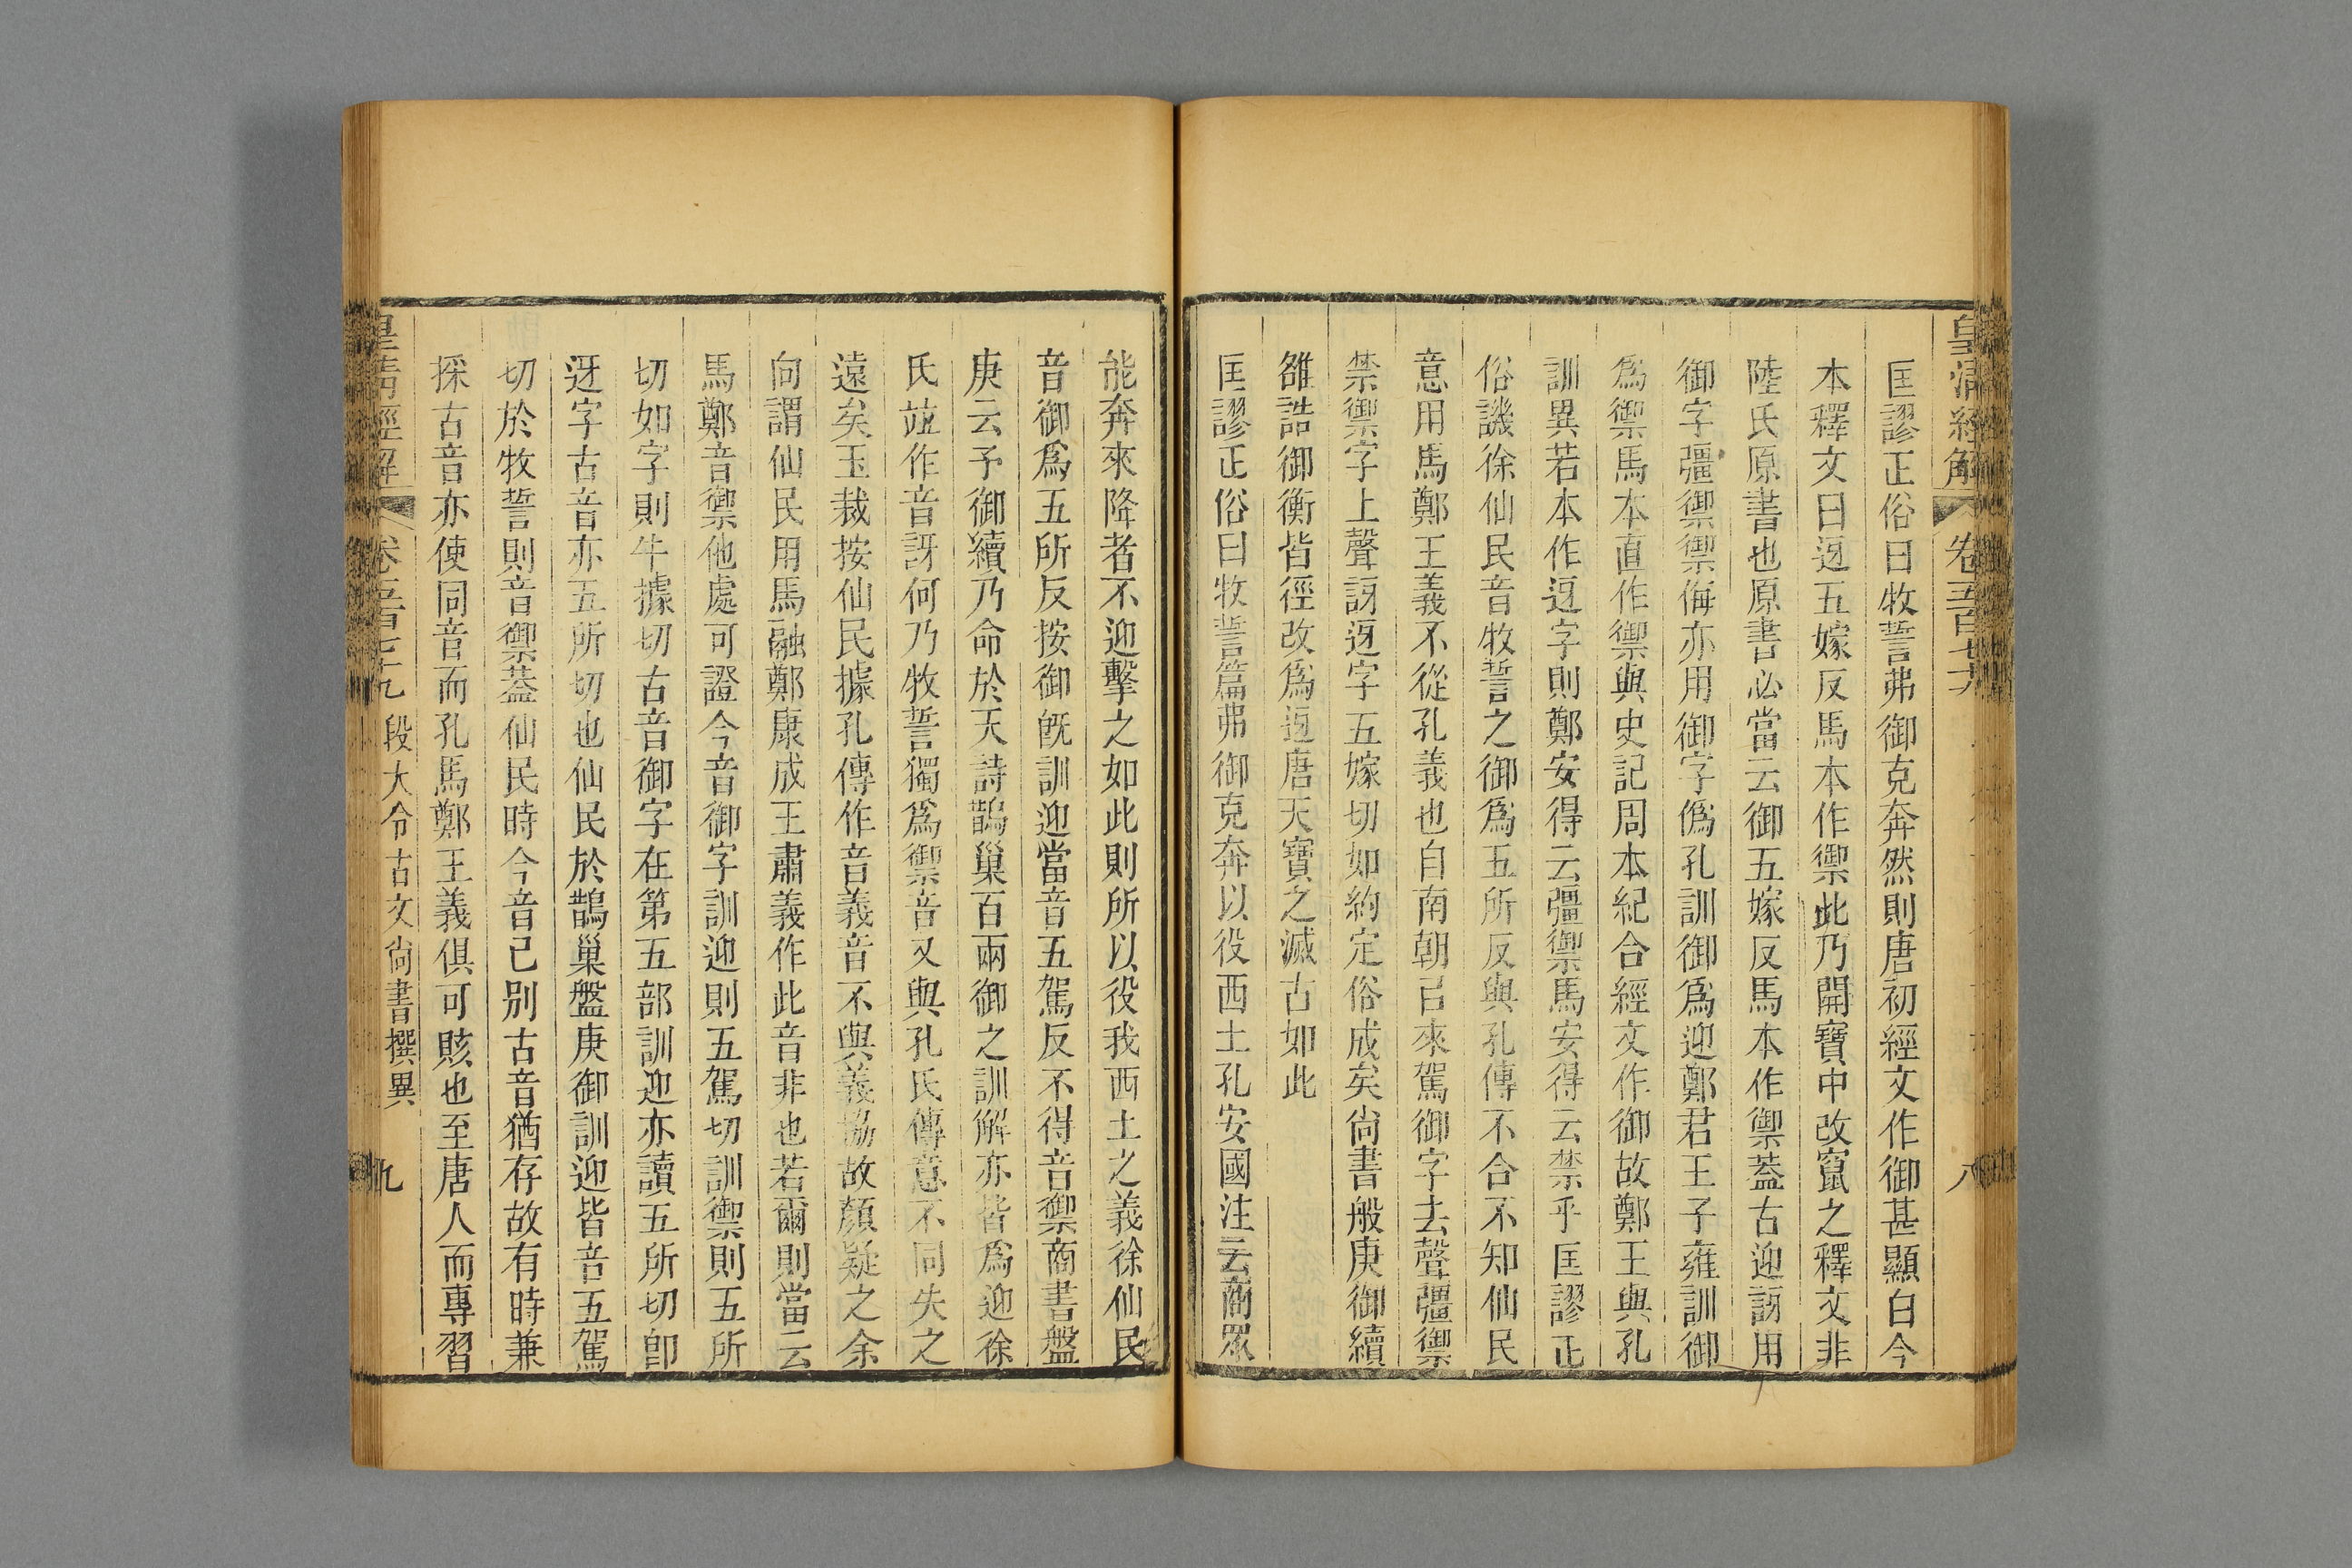 皇清經解 卷五百七十九 八
匡謬正俗曰牧誓弗御克奔然則唐初經文作御甚顯白今
本釋文曰迓五嫁反馬本作禦此乃開寶中改竄之釋文非
陸氏原書也原書必當云御五嫁反馬本作禦葢古迎訝用
御字彊禦禦侮亦用御字僞孔訓御爲迎鄭君王子雍訓御
爲禦馬本直作禦與史記周本紀合經文作御故鄭王與孔
訓異若本作迓字則鄭安得云彊禦馬安得云禁乎匡謬正
俗譏徐仙民音牧誓之御爲五所反與孔傳不合不知仙民
意用馬鄭王義不從孔義也自南朝已來駕御字去聲彊禦
禁禦字上聲訝迓字五嫁切如約定俗成矣尙書般庚御續
雒誥御衡皆徑改爲迓唐天寶之滅古如此
匡謬正俗曰牧誓篇弗御克奔以役西土孔安國注云商眾
能奔來降者不迎擊之如此則所以役我西土之義徐仙民
音御爲五所反按御旣訓迎當音五駕反不得音禦商書盤
庚云予御續乃命於天詩鵲巢百兩御之訓解亦皆爲迎徐
氏竝作音訝何乃牧誓獨爲禦音又與孔氏傳意不同失之
遠矣玉裁按仙民據孔傳作音義音不與義協故顏疑之余
向謂仙民用馬融鄭康成王肅義作此音非也若爾則當云
馬鄭音禦他處可證今音御字訓迎則五駕切訓禦則五所
切如字則牛據切古音御字在第五部訓迎亦讀五所切卽
迓字古音亦五所切也仙民於鵲巢盤庚御訓迎皆音五駕
切於牧誓則音禦葢仙民時今音已別古音猶存故有時兼
採古音亦使同音而孔馬鄭王義俱可賅也至唐人而專習
皇清經解 卷五百七十九 段大令古文尙書撰異 九